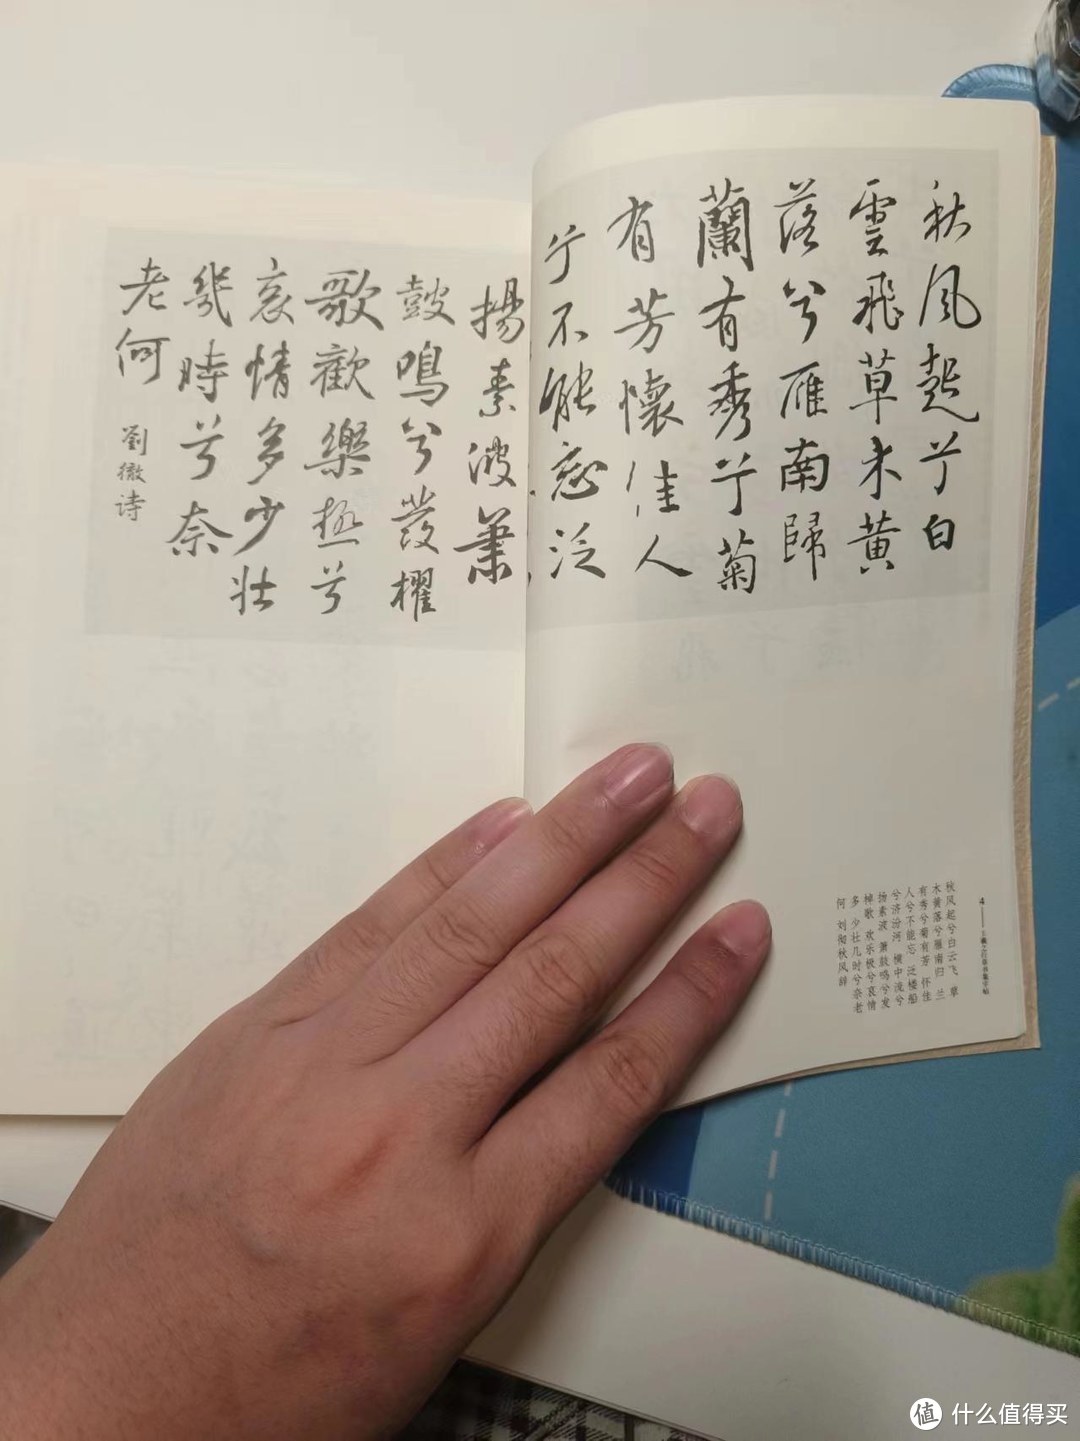 秋風起兮白
雲飛草木黃
落兮雁南歸
蘭有秀兮菊
有芳懷佳人
兮不能忘泛
揚素波簫
鼓鳴兮發櫂
歌歡樂極兮
哀情多少壯
幾時兮奈
老何
劉徹诗
4
秋风起兮白云飞 草
木黄落兮雁南归 兰
有秀兮菊有芳 怀佳
人兮不能忘 泛楼船
兮济汾河 横中流兮
扬素波 箫鼓鸣兮发
棹歌 欢乐极兮哀情
多 少壮几时兮奈老
何 刘彻秋风辞
值 什么值得买